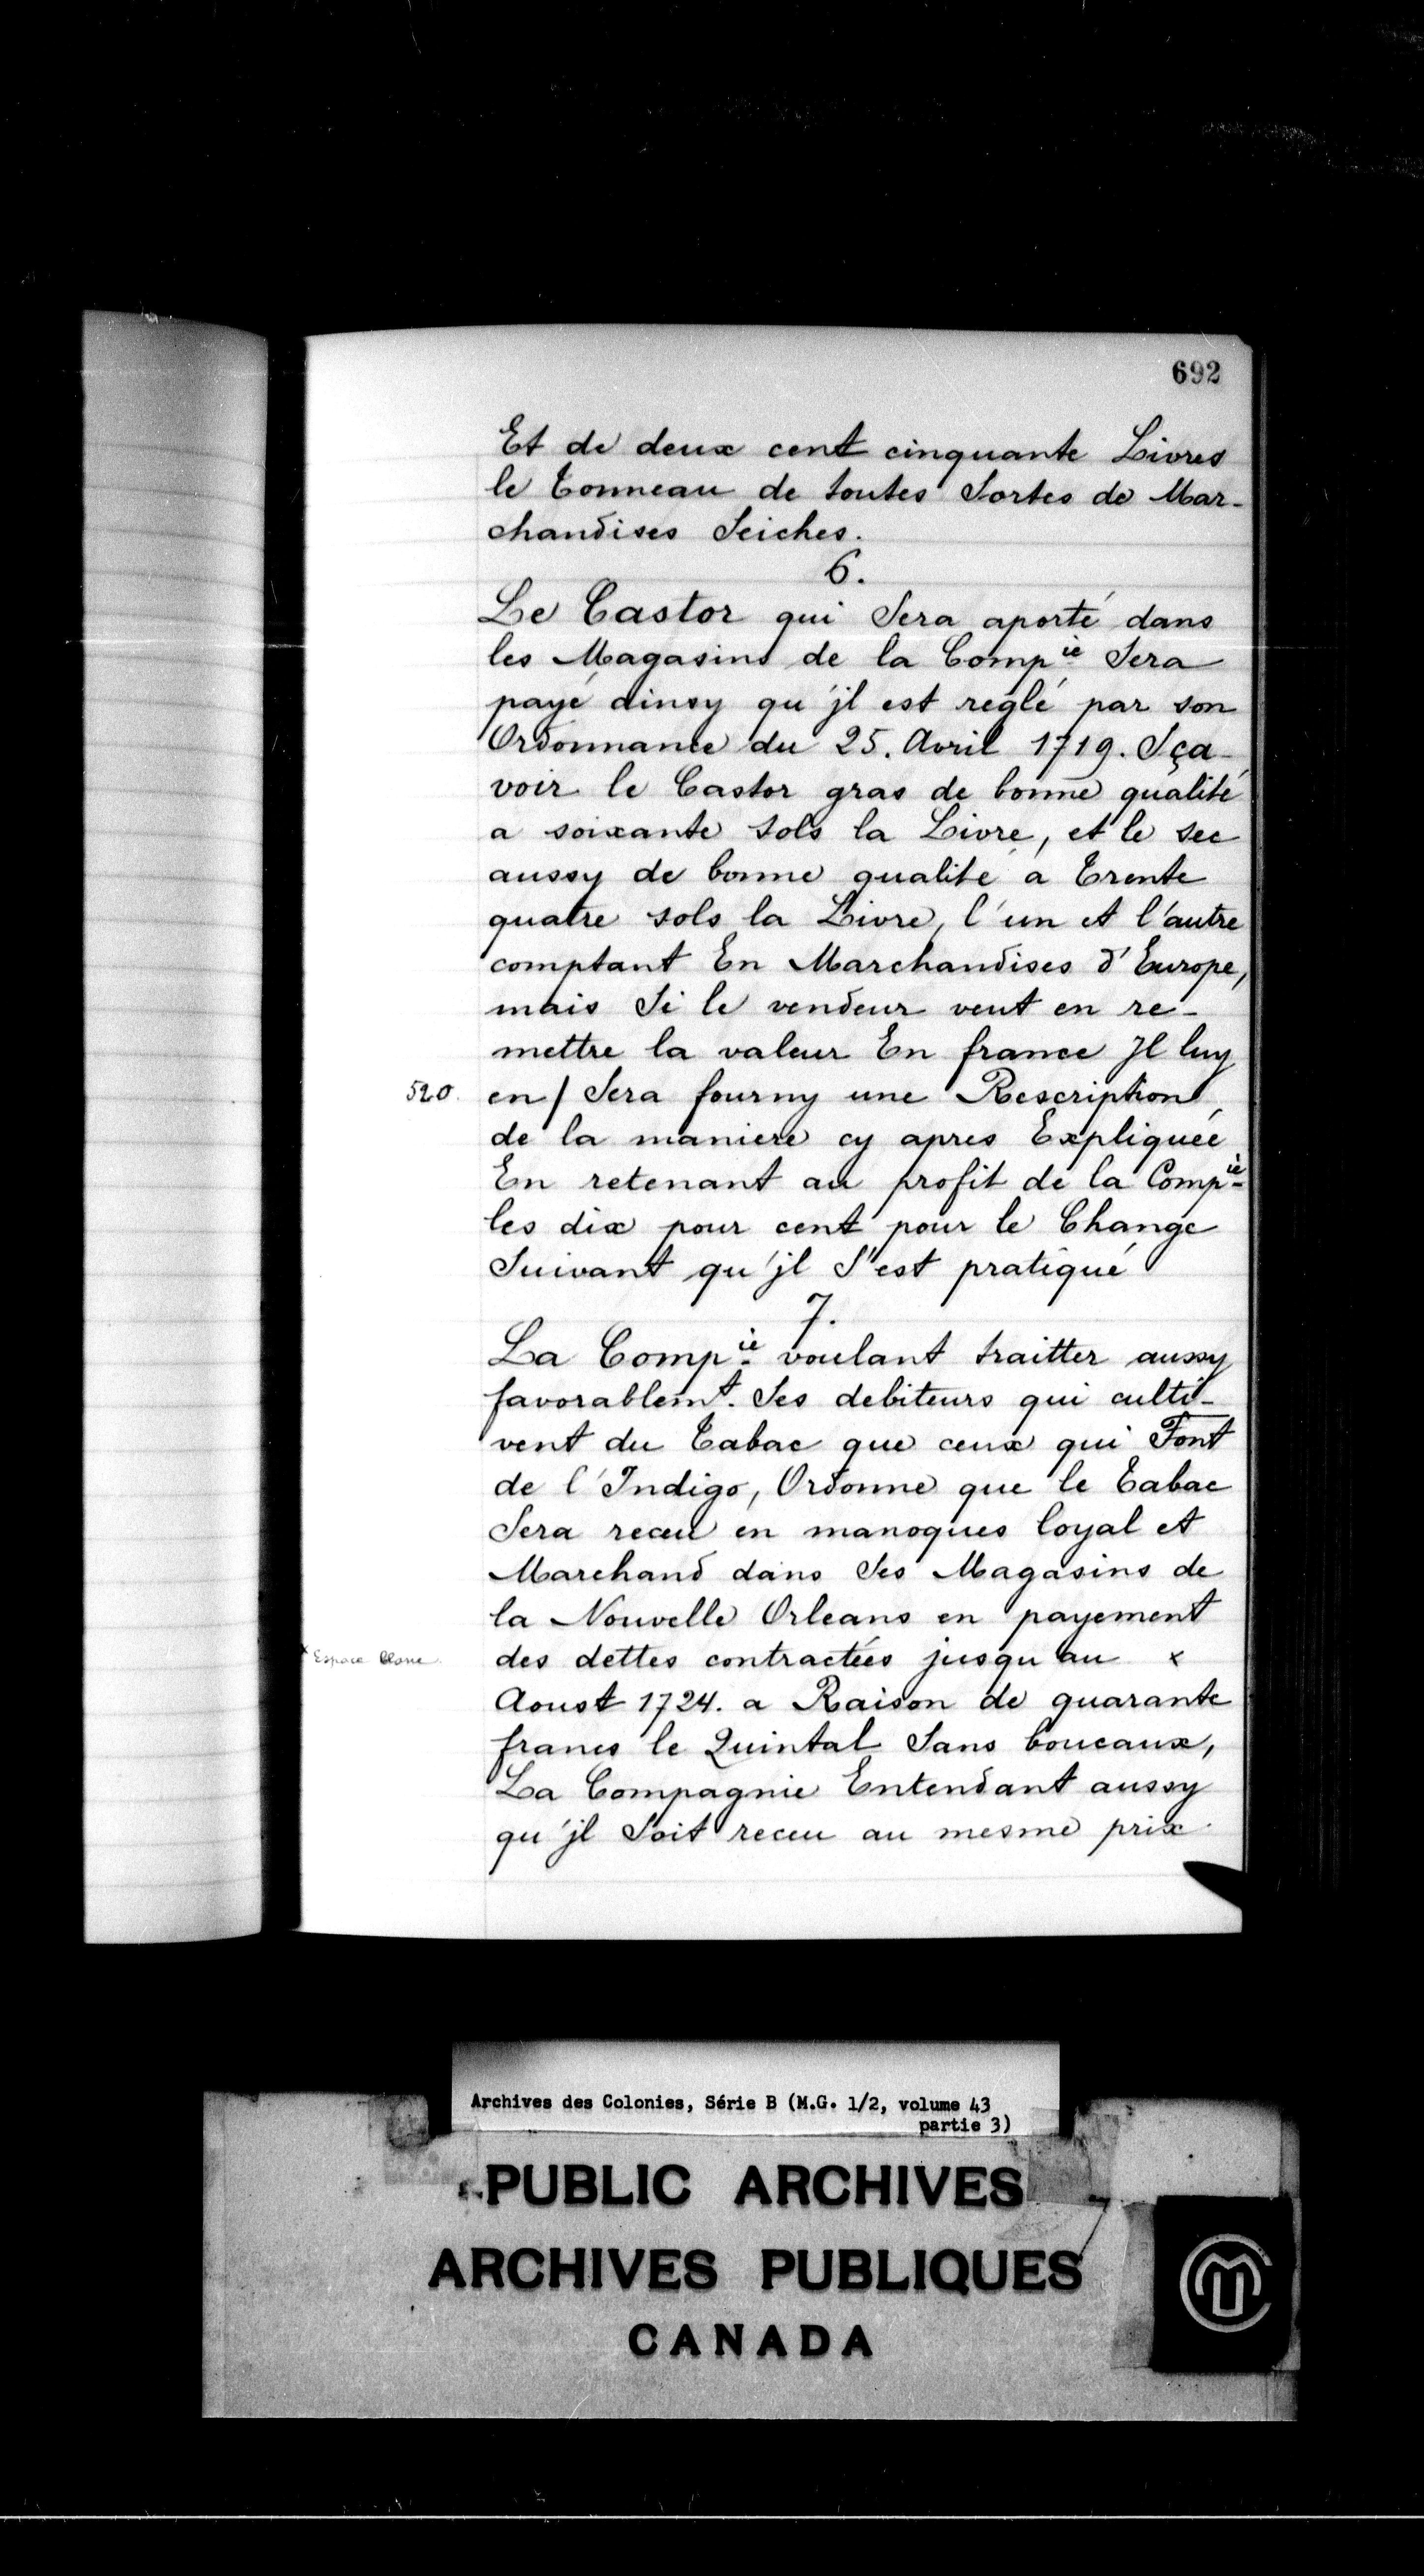 692
Et de deux cent cinquante Livres
le Tonneau de toutes Sortes de Mar-
chandises Seiches.
6.
Le Castor qui Sera aporté dans
les Magasins de la Comp.ie Sera
payé ainsy qu'jl est reglé par son
Ordonnance du 25. Avril 1719. Sça-
voir le Castor gras de bonne qualité
a soixante sols la Livre, et le sec
aussy de bonne qualité a Trente
quatre sols la Livre, l'un et l'autre
comptant En Marchandises d'Europe,
mais Si le vendeur veut en re-
mettre la valeur En france Jl luy
520. en/ Sera fourny une Rescription
de la maniere cy apres Expliquée
En retenant au profit de la Comp.ie
les dix pour cent pour le Change
Suivant qu'jl S'est pratiqué
7.
La Comp.ie voulant traitter aussy
favorablem.t Ses debiteurs qui culti-
vent du Tabac que ceux qui Font
de l'Indigo, Ordonne que le Tabac
Sera receu en manoques loyal et
Marchand dans Ses Magasins de
la Nouvelle Orleans en payement
x Espace blanc. des dettes contractées jusqu'au x
Aoust 1724. a Raison de quarante
francs le Quintal Sans boucaux,
La Compagnie Entendant aussy
qu'jl Soit receu au mesme prix
Archives des Colonies, Série B (M.G. 1/2, volume 43
partie 3)
PUBLIC ARCHIVES
ARCHIVES PUBLIQUES
CANADA